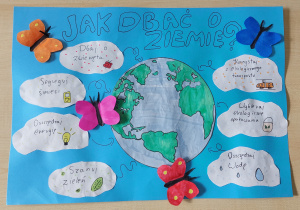 JAK DBAĆ O
ZIEMIĘ?
Dbaj o
zwierzęta
Segreguj
śmieci
Oszczędzaj
energię
Szanuj
zieleń
Korzystaj
z ekologicznego
transportu
Wybieraj
ekologiczne
opakowania
Oszczędzaj
wodę